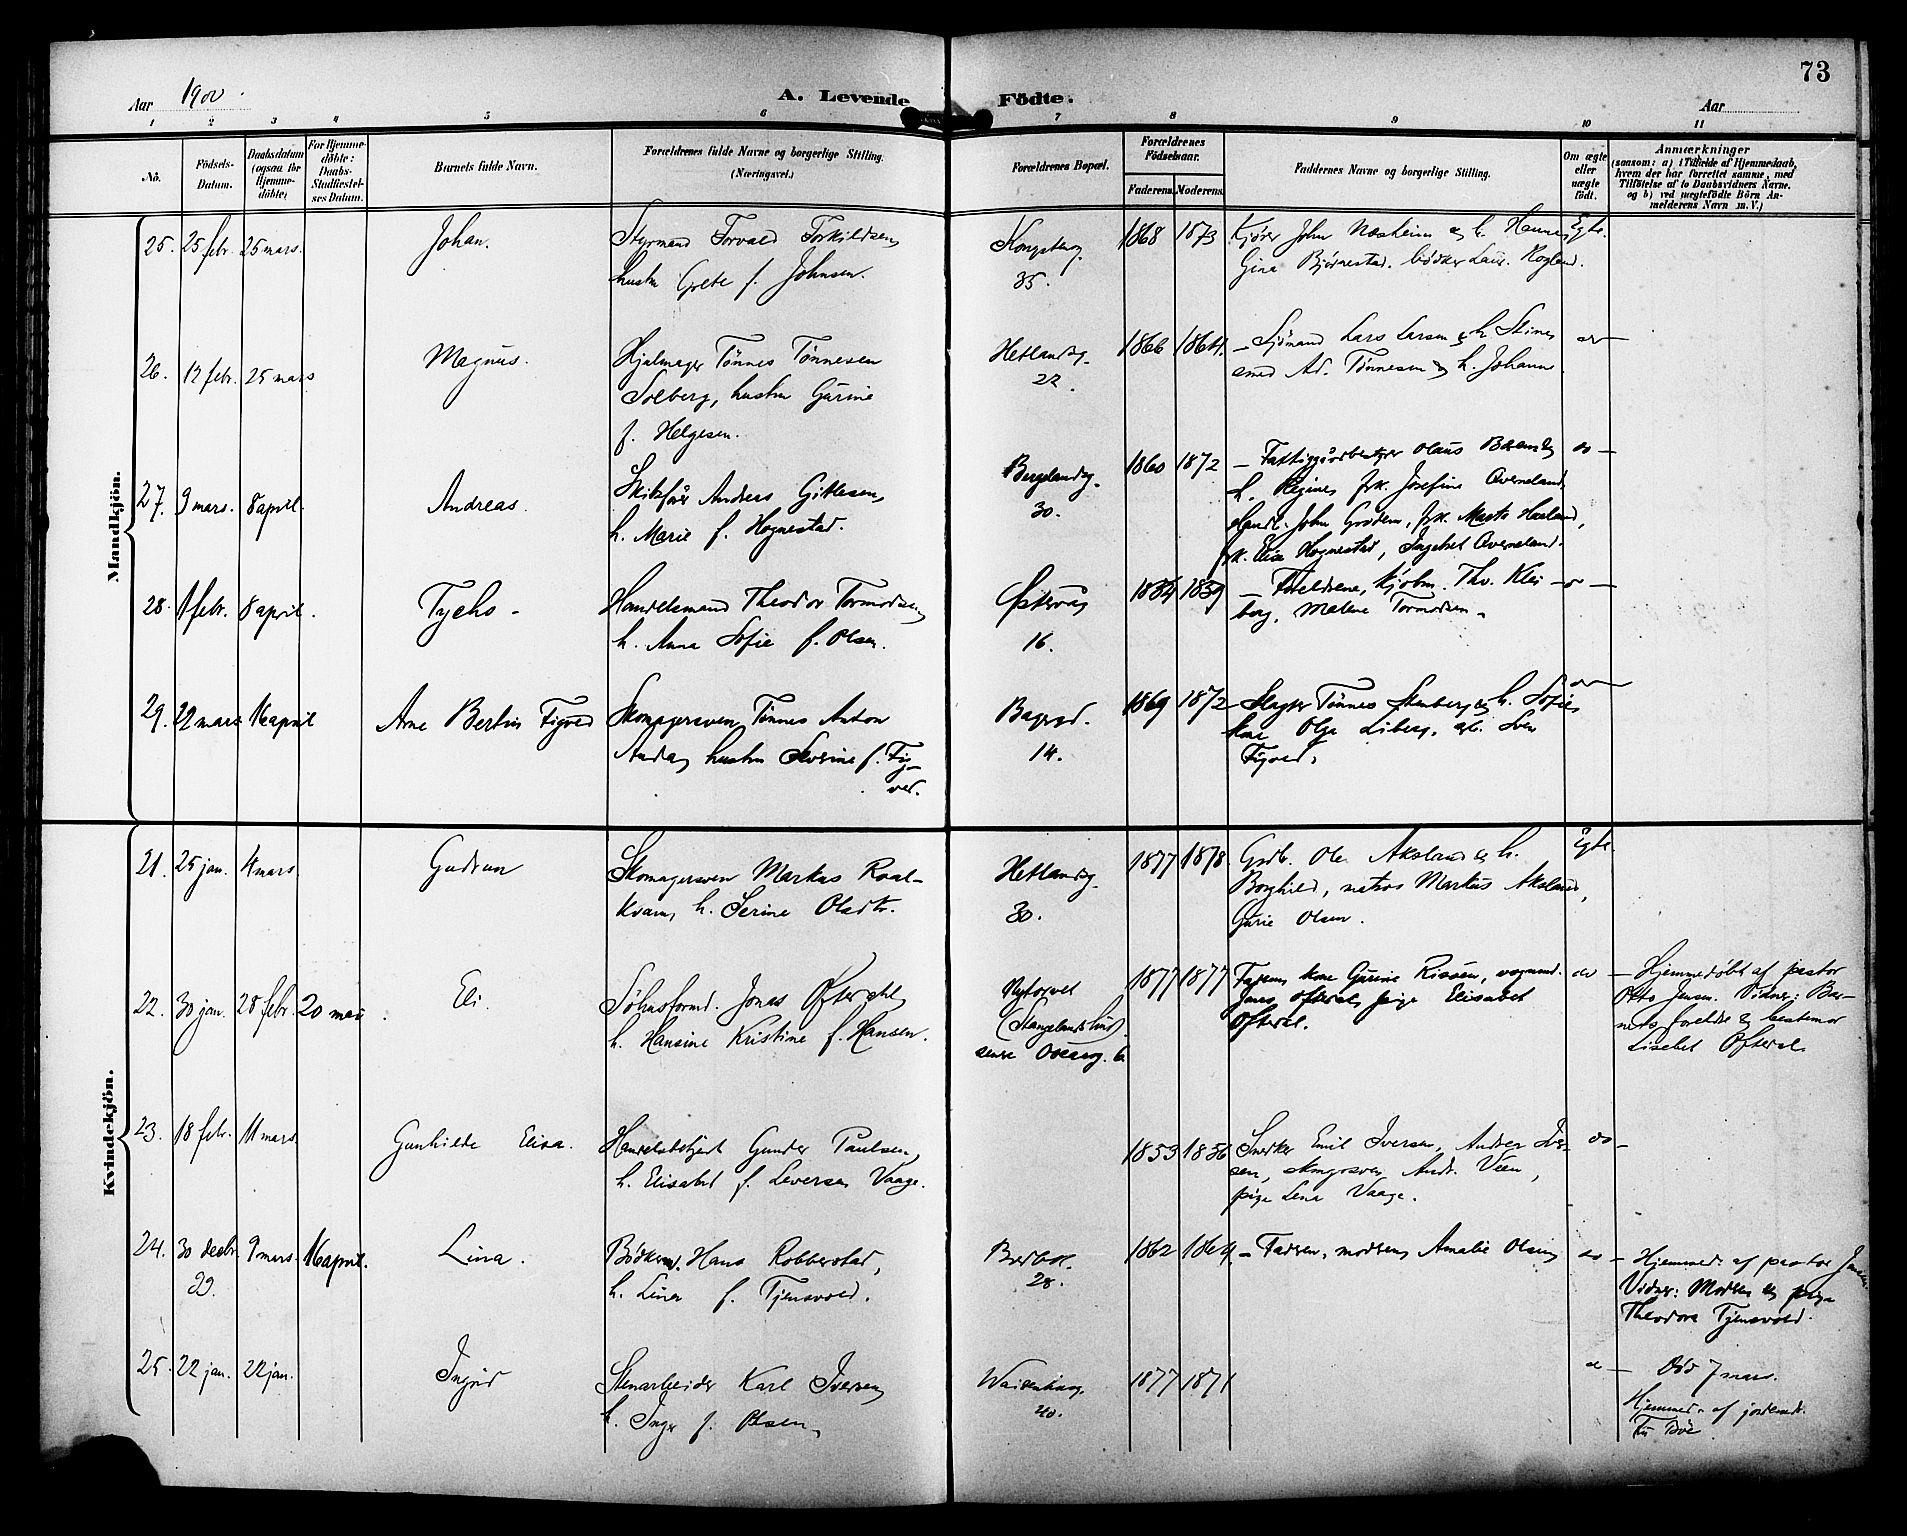 73
Aar 1900.
A. Levende Födte.
Aar
1 2 3 4 5 6 7 8 9 10 11
No.
Födsels-Datum.
Daabsdatum (ogsaa for Hjemme-döbte)
For Hjemme-döbte: Daabs-Stadfæstel-ses Datum.
Barnets fulde Navn.
Forældrenes fulde Navne og borgerlige Stilling. (Næringsvei.)
Forældrenes Bopæl.
Forældrenes Födselsaar.
Faderens. Moderens.
Faddernes Navne og borgerlige Stilling.
Om ægte eller uægte født.
Anmærkninger
(saasom: a) i Tilfælde af Hjemmedaab,
hvem der har forrettet samme, med
Tilföielse af to Daabsvidners Navne.
og b) ved uægtefödte Börn An-
melderens Navn m. V.)
Mandkjön.
25. 25 febr. 25 mars. Johan.
Styrmand Torvald Torkildsen,
hustru Grete f. Johnsen.
Kongsberg.
35.
1868 1873
Kjører John Næsheim og h. Hanne,
Gina Bjørnestad. bødker Laur. Rogland.
Egte.
26. 12 febr. 25 mars Magnus.
Hjulmager Tønnes Tønnesen
Solberg, hustru Gurine
f. Helgesen.
Hetlandsg.
22.
1866 1864.
– Sjømand Lars Larsen og h. Stine,
smed Ad. Tønnesen og h. Johanne.
do –
27. 9 mars. 8 april. Andreas.
Skibsfører Andreas Gitlesen,
h. Marie f. Hognestad.
Bergelandsg.
30.
1860 1872
– Fattiggaardbestyrer Olaus
h. Regine, frk. Josefine Qverneland,
Handl. John Grødem, frk. Marta Haaland,
frk. Elise Hognestad, Ingebret Qverneland.
do –
28. 1 febr. 8 april. Tycho –
Handelsmand Theodor Tormodsen,
h. Anna Sofie f. Olsen.
Østervåg
16.
1854 1859
– Forældrene, kjøbm. Thv. Klei
berg, Malene Tormodsen.
29. 22 mars 16 april Arne Bertin Figved
Skomagersven Tønnes Anton
Anda, hustru Severine f. Fig-
ved.
Bagerg.
14.
1869 1872
– Slagter Tønnes Stenberg og h. Sofie,
kone Olga Liberg, arb. Sven
Figved.
Kvindekjön.
21. 25 jan. 4 mars Gudrun
Skomagersven Markus Roal-
kvam, h. Serine Olsdtr.
Hetlandsg.
30.
1877 1878.
Grdb. Ole Aksland og h.
Borghild, matros Markus Aksland,
Gurie Olsen.
Egte.
22. 30 jan. 28 febr. 20 mai Eli.
Jonas Øfterdal,
h. Hansine Kristine f. Hansen.
Nytorvet
6.
1877 1877
Faderen, kone Gurine Risøen, vognmd.
Jens Øfterdal, pige Elisabet
Øfterdal.
do
– Hjemmedøbt af pastor
Otto Jensen. Vidner: Bar-
nets forældre og bestemor
Lisebet Øfterdal
23. 18 febr. 11 mars. Gunhilde Elisa.
Handelsbetjent Gunder Paulsen,
h. Elisabet f. Leversen Vaage.
1853 1856
Snedker Emil Iversen, Andrea Iver-
sen, Andr. Veen,
pige Lena Vaage.
do –
24. 30 decbr. 99. 9 mars. 16 april. Lina.
Bødkersv. Hans Robberstad,
h. Lina f. Tjensvold.
Bredbak.
28.
1862 1864.
– Faderen, moderen, Amalie Olsen,
do
– Hjemmed. af pastor Jensen.
Vidner: Moderen og pige
Theodora Tjensvold.
25. 22 jan. 22 jan. Ingrid
Stenarbeider Karl Iversen,
h. Inger f. Olsen.
Waisenhusg.
40.
1877 1871
– Død 7 mars.
Hjemmed. af jordemdr.
Frk. Bøe.